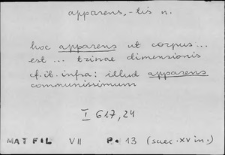 apparens, -tis n.
hoc apparens ut corpus...
est ... trinae dimensionis
cf. il. infra: illud apparens
communissimum
I 617, 24
MAT FIL VII P. 13 (saec. XV in.)